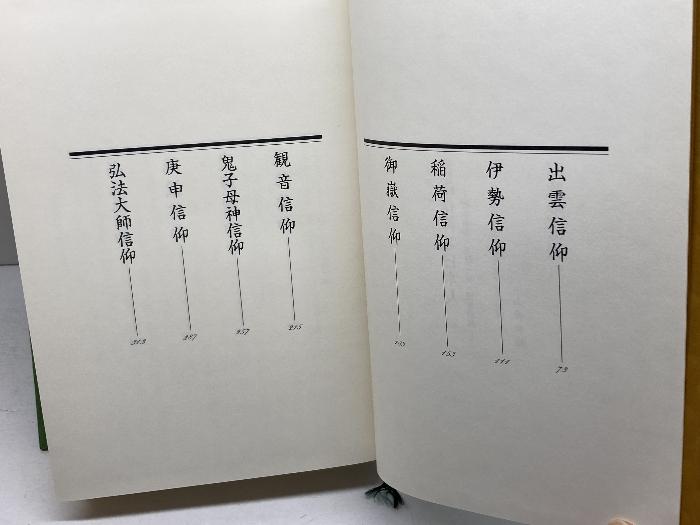 出雲信仰 73
伊勢信仰 111
稲荷信仰 153
御嶽信仰
観音信仰 215
鬼子母神信仰 257
庚申信仰 287
弘法大師信仰 313